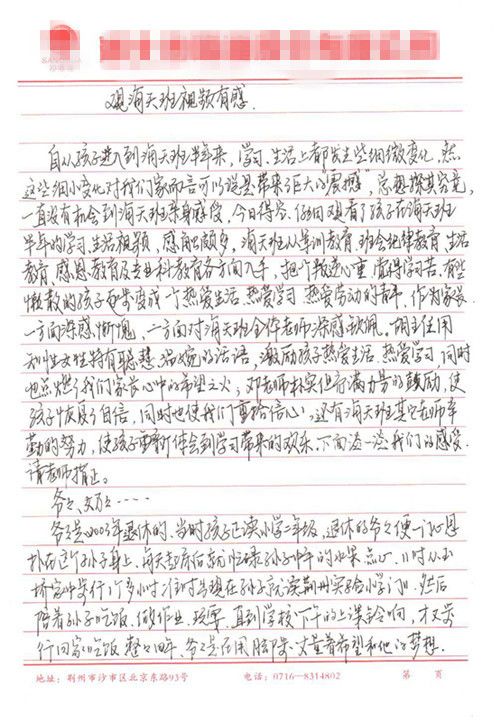 观海天班视频有感.
自从孩子进入到海天班半年来，学习、生活上都发生些细微变化，然
这些细小变化对我们家而言可以说是带来了巨大的“震撼”，总想探其究竟，
一直没有机会到海天班亲身感受，今日得容、仔细观看了孩子在海天班
半年的学习、生活视频，感触颇多，海天班从军训教育、班会纪律教育、生活
教育、感恩教育及专业科教育各方面入手，把个叛逆心重、觉得学习苦、有些
懒散的孩子逐步变成一个热爱生活、热爱学习、热爱劳动的青年，作为家长
一方面深感惭愧、一方面对海天班全体老师深感钦佩。胡主任用
知性女性特有聪慧、温婉的话语，激励孩子热爱生活、热爱学习，同时
也点燃了我们家长心中的希望之火，邓老师朴实但充满力量的鼓励，使
孩子恢复了自信，同时也使我们重拾信心，还有海天班其它老师辛
勤的努力，使孩子重新体会到学习带来的欢乐。下面谈一谈我们的感受.
请老师指正。
爷々、奶々・・・・
爷々是2003年退休的、当时孩子已读小学二年级，退休的爷々便一心思
扑在这个孙子身上，每天起床后就忙碌孙子中午的水果、点心，11时从玉
桥宅中步行1个多小时准时出现在孙子就读荆州实验小学门口，然后
陪着孙子吃饭、做作业、玩耍，直到学校下午的上课铃响，才又步
行回家吃饭，整々四年，爷々是在用脚步丈量着希望和他的梦想.
地址：荆州市沙市区北京东路93号 电话：0716—8314802 第 页